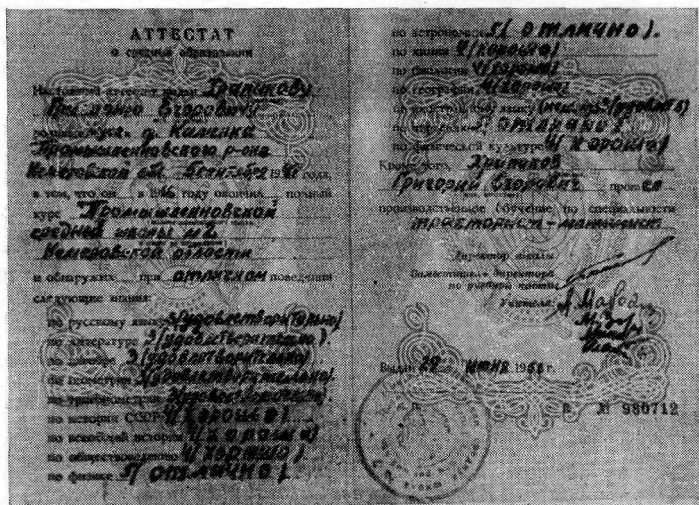 АТТЕСТАТ
о среднем образовании
Настоящий аттестат выдан Храпикову
Григорию Егоровичу
д. Каменка
Промышленновского р-она
Кемеровской обл. 19 года,
в том, что он в 1966 году окончил полный
курс Промышленновской
средней школы №2
Кемеровской области
и обнаружил при отличном поведении
следующие знания:
по русскому языку 3(удовлетворительно)
по литературе 3(удовлетворительно).
по алгебре 3(удовлетворительно)
по геометрии 3(удовлетворительно).
по тригонометрии
по истории СССР 4(хорошо)
по всеобщей истории 4(хорошо)
по обществоведению 4(хорошо)
по физике 5(отлично).
по астрономии 5(отлично).
по химии 4(хорошо)
по биологии 4(хорошо)
по географии 4(хорошо)
по иностранному языку
по черчению 5(отлично)
по физической культуре 4(хорошо)
Кроме того, Храпиков
Григорий Егорович прошёл
производственное обучение по специальности
тракторист-машинист
Директор школы
Заместитель директора
по учебной части:
Учителя:
Выдан 29 июня 1966 г.
№ 980712